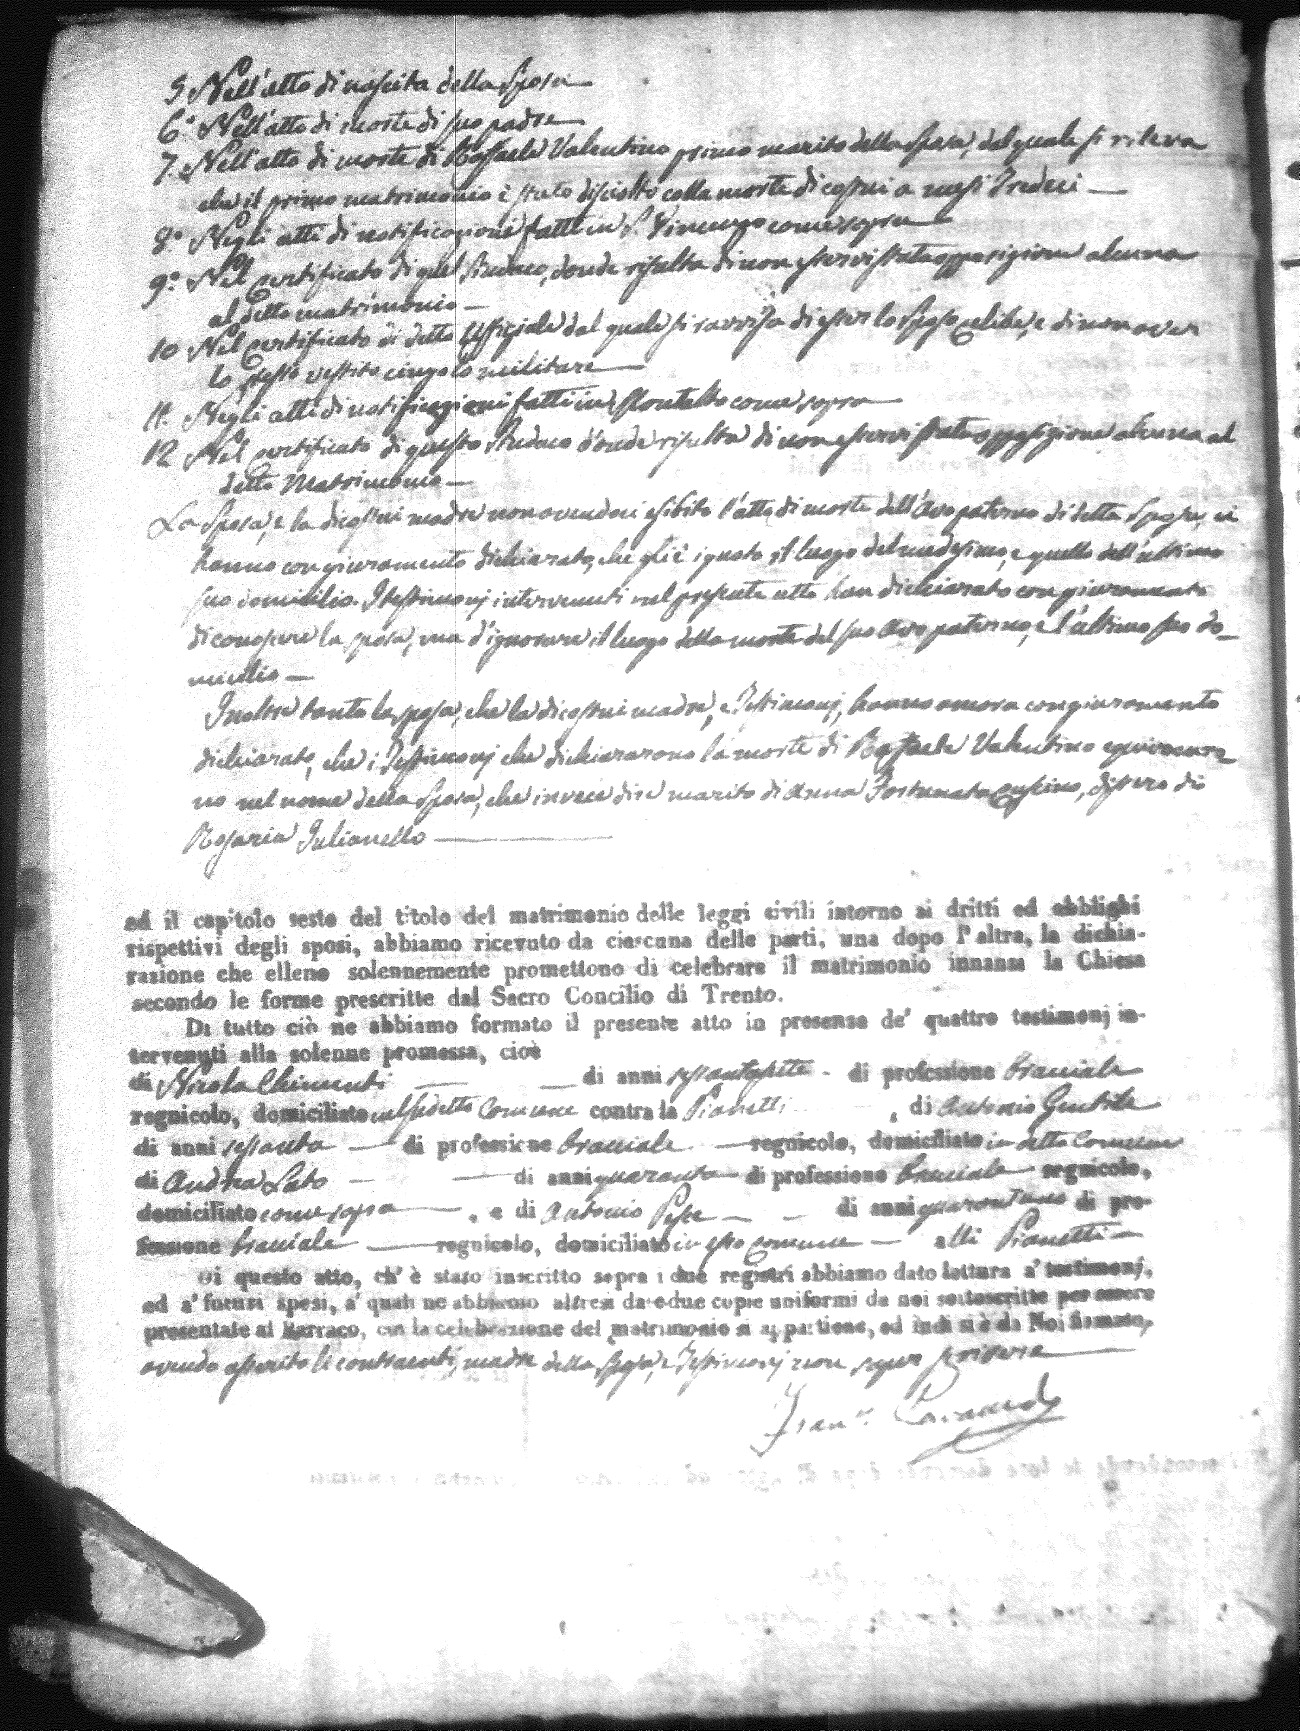 5. Nell'atto di nascita della Sposa
6.° Nell'atto di morte di suo padre
7. Nell'atto di morte di Raffaele Valentino primo marito della sposa, dal quale si rileva
che il primo matrimonio è stato disciolto colla morte di costui a mesi tredeci
8.° Negli atti di notificazioni fatti in S. Vincenzo come sopra
9.° Nel certificato di quel Sindaco, donde risulta di non esservi stata opposizione alcuna
al detto matrimonio
10 Nel certificato di detto Uffiziale dal quale si ravvisa di esser lo sposo celibe, e di non aver
lo stesso vestito cingolo militare
11. Negli atti di notificazioni fatti in Montalto come sopra
12 Nel certificato di questo Sindaco d'onde risulta di non esservi stata opposizione alcuna al
detto Matrimonio
La Sposa, e la di costui madre non avendoci esibito l'atto di morte dell'Avo paterno di detta Sposa, ci
hanno con giuramento dichiarato, che gli è ignoto il luogo del medesimo, e quello dell'ultimo
suo domicilio. I testimonj intervenuti nel presente atto han dichiarato con giuramento
di conoscere la sposa, ma d'ignorare il luogo della morte del suo Avo paterno, e l'ultimo suo do-
micilio
Inoltre tanto la sposa, che la di costui madre, e Testimonj, hanno ancora con giuramento
dichiarato, che i Testimonj che dichiararono la morte di Raffaele Valentino equivocaro-
no nel nome della Sposa, che invece dire marito di Anna Fortunata, dissero di
Rosaria Iulianello
ed il capitolo sesto del titolo del matrimonio delle leggi civili intorno ai dritti ed obblighi
rispettivi degli sposi, abbiamo ricevuto da ciascuna delle parti, una dopo l'altra, la dichia-
razione che elleno solennemente promettono di celebrare il matrimonio innanzi la Chiesa
secondo le forme prescritte dal Sacro Concilio di Trento.
Di tutto ciò ne abbiamo formato il presente atto in presenza de' quattro testimonj in-
tervenuti alla solenne promessa, cioè
di Nicola Chimenti di anni sessantasette di professione bracciale
regnicolo, domiciliato nel sudetto Comune contrada Pianetti, di Antonio Gentile
di anni sessanta di professione bracciale regnicolo, domiciliato in detto Comune
di Andrea Lato di anni quaranta di professione bracciale regnicolo,
domiciliato come sopra, e di Antonio Pepe di anni quarantuno di pro-
fessione bracciale regnicolo, domiciliato in esso comune alli Pianetti
Di questo atto, ch'è stato inscritto sopra i due registri abbiamo dato lettura a' testimonj,
ed a' futuri sposi, a' quali ne abbiamo altresì date due copie uniformi da noi sottoscritte per essere
presentate al Parroco, cui la celebrazione del matrimonio si appartiene, ed indi si è da Noi firmato,
avendo asserito li contraenti, madre della Sposa, e Testimonj non saper scrivere